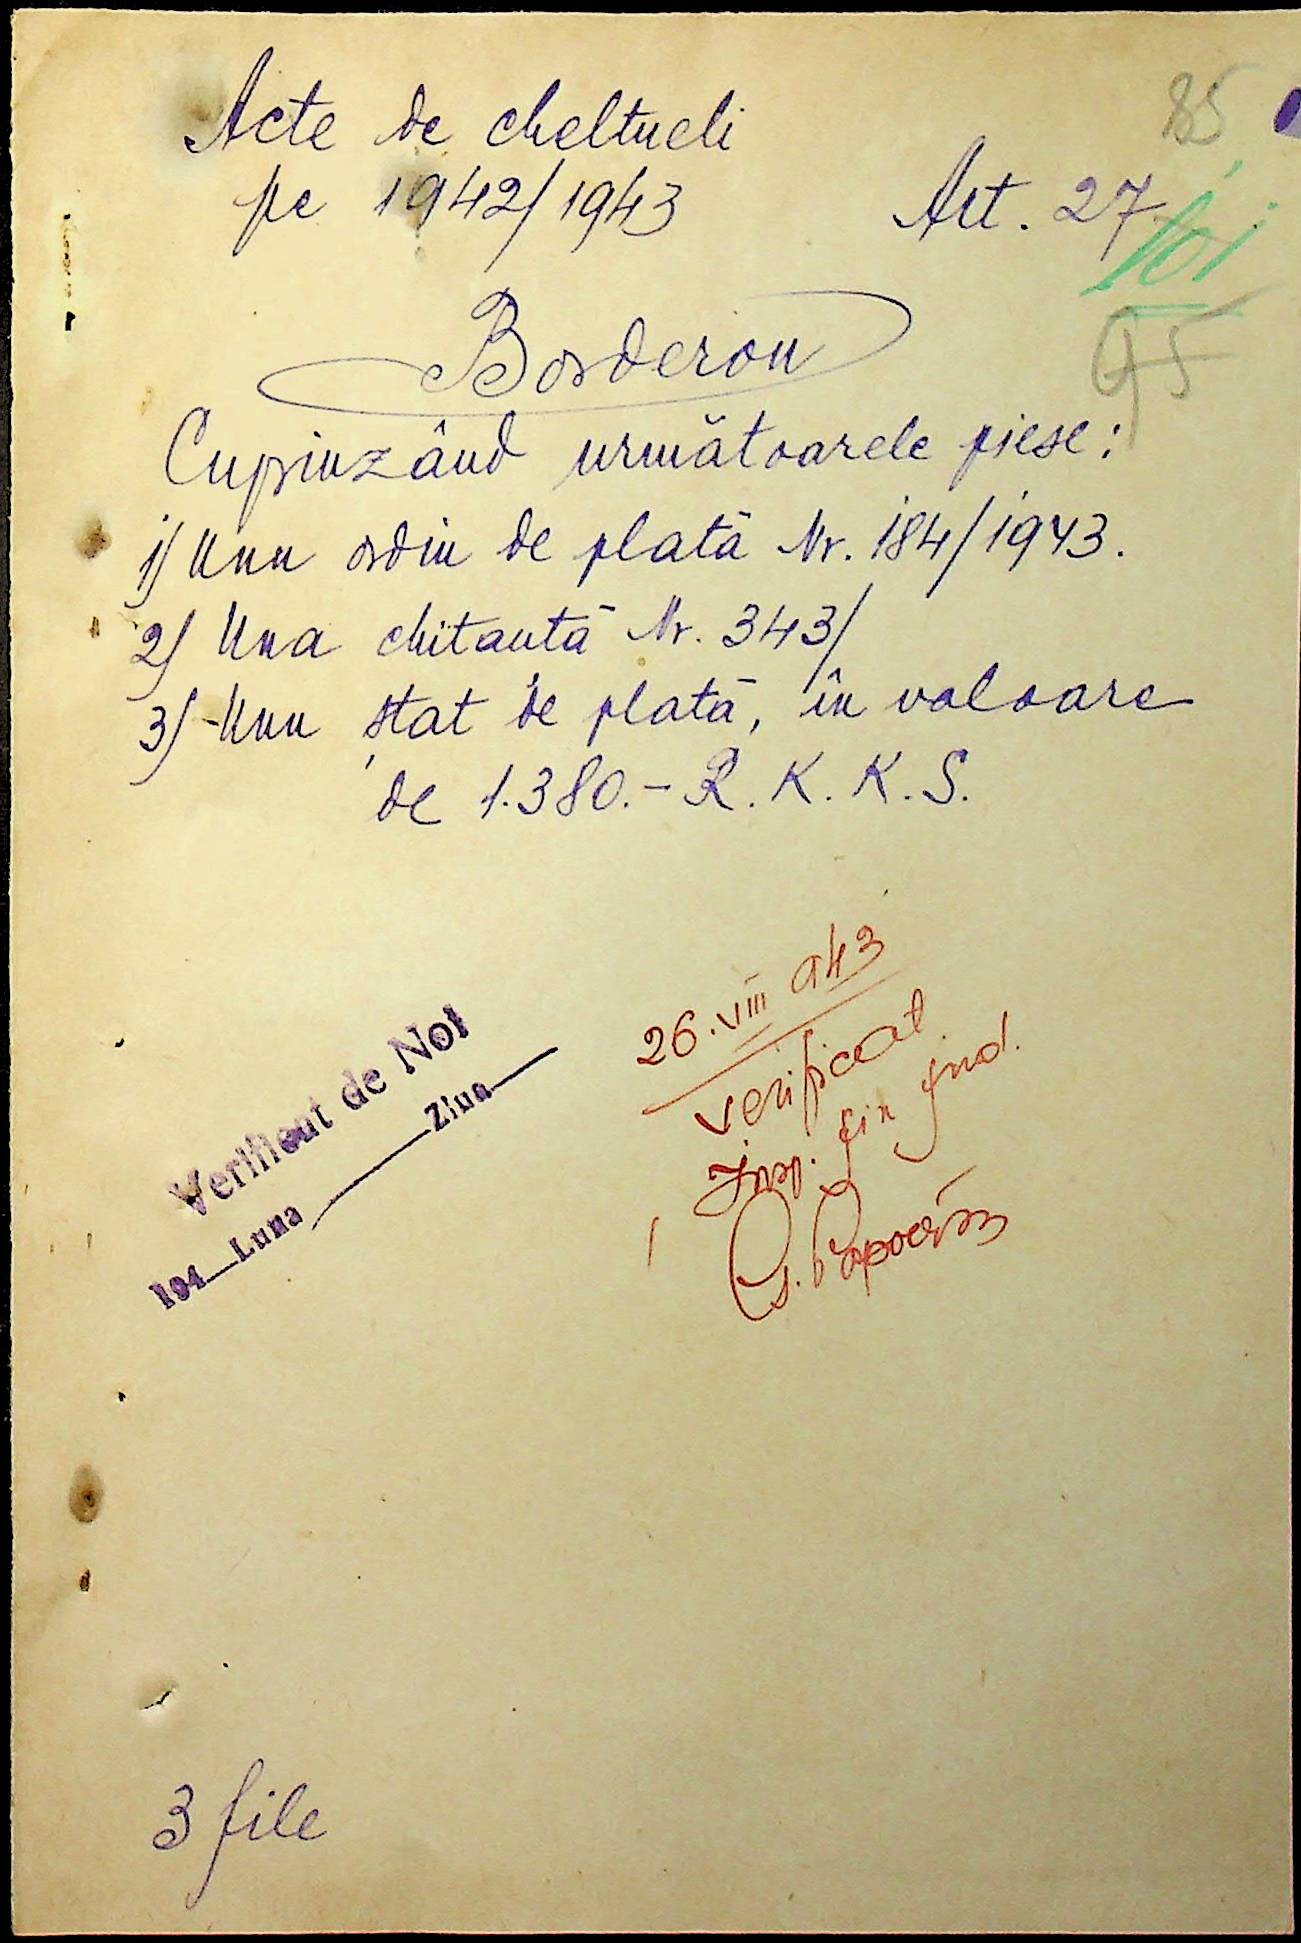 85
Acte de cheltueli
pe 1942/1943
Art. 27
101
95
Borderou
Cuprinzând următoarele piese:
1) Unu ordin de plată Nr. 184/1943.
2) Una chitantă Nr. 343/
3) Unu stat de plată, în valoare
de 1.380.- R.K.K.S.
26.VIII 943
verificat
Insp. fin jud.
G.
Verificat de Noi
194 Luna Ziua
3 file